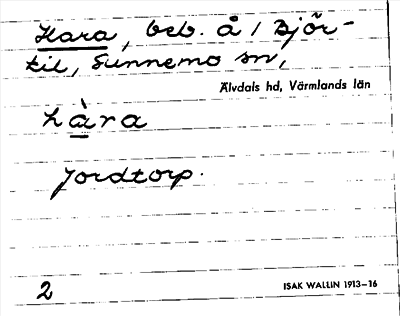 Hara, beb. å 1 Björ-
kil, Sunnemo sn,
Älvdals hd, Värmlands län
hàra
Jordtorp.
2
ISAK WALLIN 1913–16